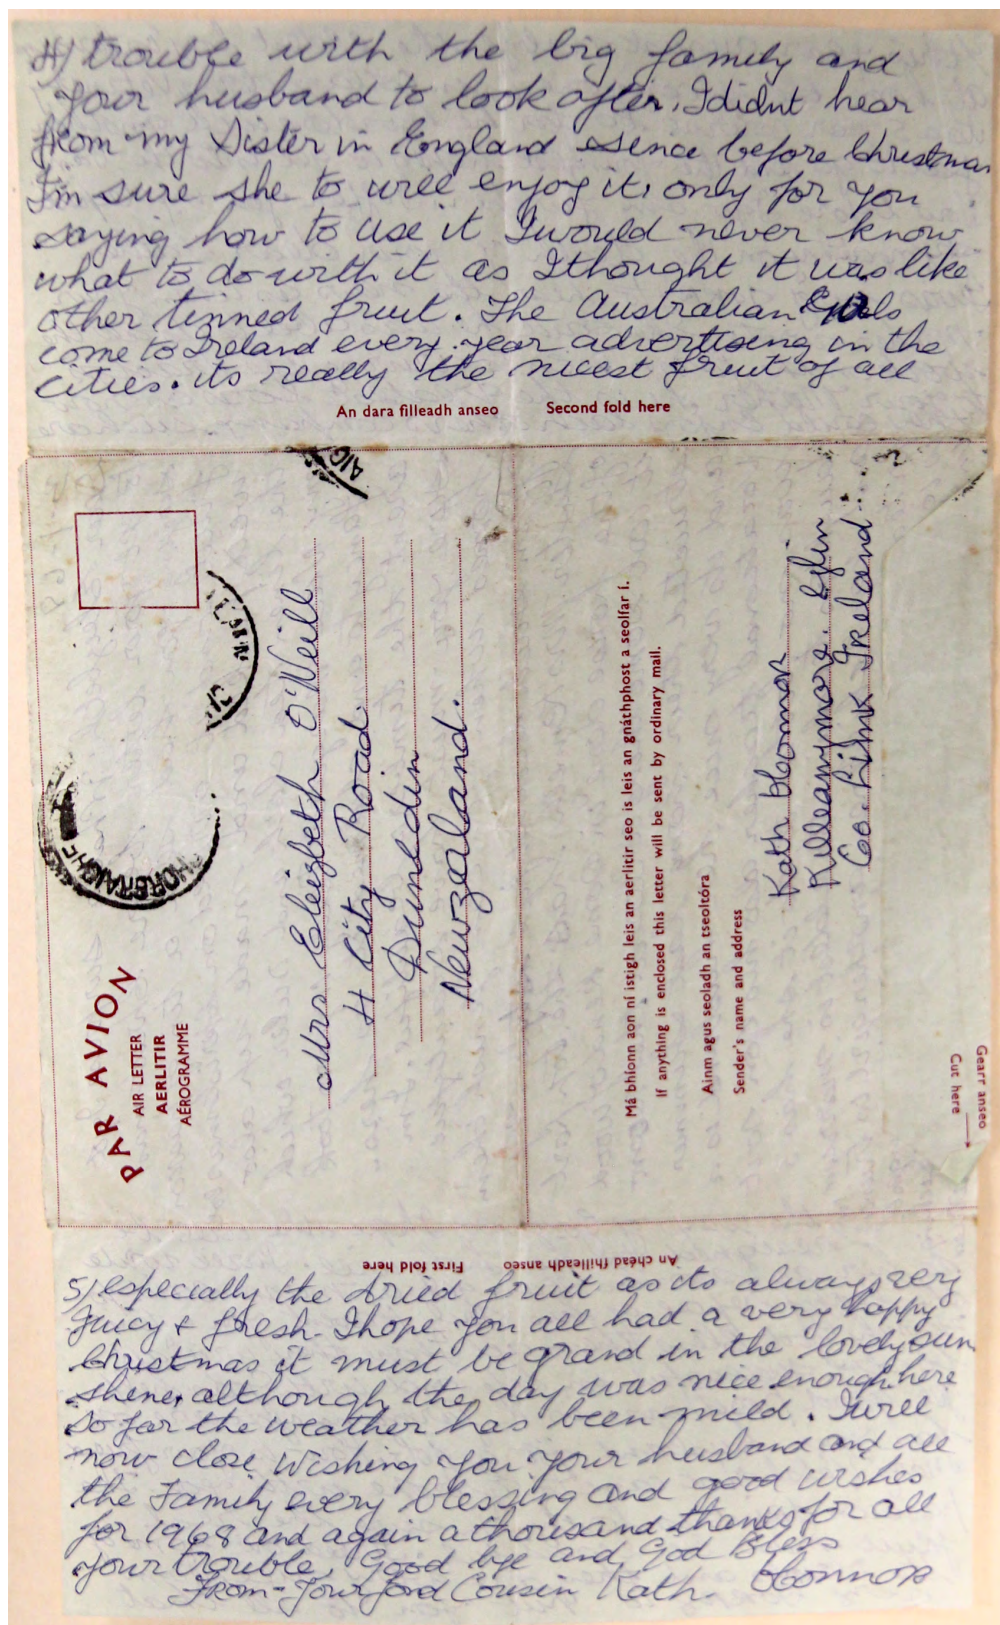 4) trouble with the big family and
your husband to look after, I didnt hear
from my Sister in England since before Christmas
I'm sure she to will enjoy it, only for you
saying how to use it I would never know
what to do with it as I thought it was like
other tinned fruit. The Australian Girls
come to Ireland every year advertising in the
cities. its really the nicest fruit of all
An dara filleadh anseo Second fold here
PAR AVION
AIR LETTER
AERLITIR
AÉROGRAMME
Mrs Elizbeth O'Neill
4 City Road
Dunedin
Newzaland.
Má bhíonn aon ní istigh leis an aerlitir seo is leis an gnáthphost a seolfar í.
If anything is enclosed this letter will be sent by ordinary mail.
Ainm agus seoladh an tseoltóra
Sender's name and address
Kath OConnor
Killeanymore. Effin
Co. Limk Ireland
Gearr anseo
Cut here
An chéad fhilleadh anseo First fold here
5) especially the dried fruit as its always very
Juicy + fresh. I hope you all had a very happy
Christmas it must be grand in the lovely sun
shine, although the day was nice enough here
so far the weather has been mild. I will
now close Wishing you your husband and all
the Family every blessing and good wishes
for 1968 and again a thousand thanks for all
your trouble, Good bye and God Bless
From - Your fond Cousin Kath. OConnor